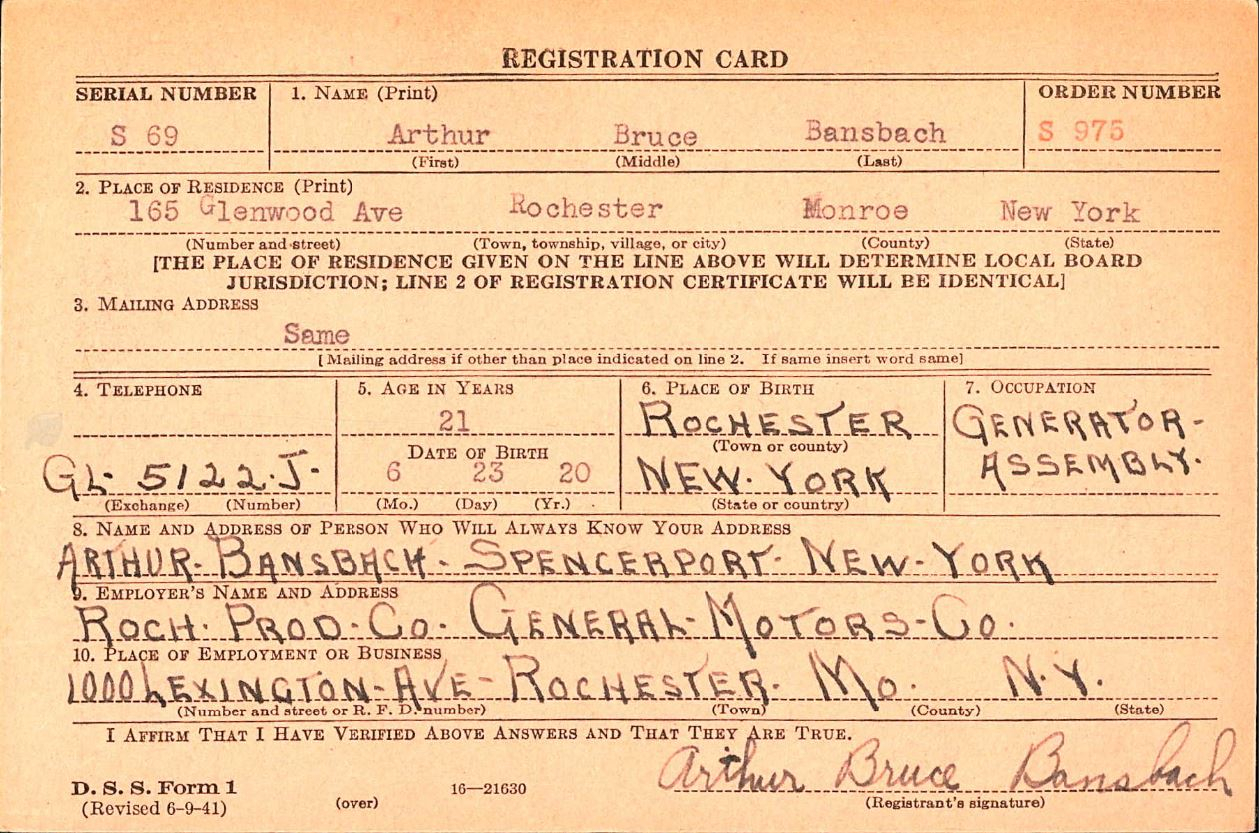 REGISTRATION CARD
SERIAL NUMBER 1. NAME (Print) ORDER NUMBER
S 69 Arthur Bruce Bansbach S 975
(First) (Middle) (Last)
2. PLACE OF RESIDENCE (Print)
165 Glenwood Ave Rochester Monroe New York
(Number and street) (Town, township, village, or city) (County) (State)
[THE PLACE OF RESIDENCE GIVEN ON THE LINE ABOVE WILL DETERMINE LOCAL BOARD
JURISDICTION; LINE 2 OF REGISTRATION CERTIFICATE WILL BE IDENTICAL]
3. MAILING ADDRESS
Same
[Mailing address if other than place indicated on line 2. If same insert word same]
4. TELEPHONE 5. AGE IN YEARS 6. PLACE OF BIRTH 7. OCCUPATION
21 ROCHESTER GENERATOR-
(Town or county)
DATE OF BIRTH
GL- 5122.J- 6 23 20 NEW-YORK ASSEMBLY.
(Exchange) (Number) (Mo.) (Day) (Yr.) (State or country)
8. NAME AND ADDRESS OF PERSON WHO WILL ALWAYS KNOW YOUR ADDRESS
ARTHUR-BANSBACH-SPENCERPORT-NEW-YORK
9. EMPLOYER'S NAME AND ADDRESS
ROCH. PROD-CO. GENERAL-MOTORS-CO.
10. PLACE OF EMPLOYMENT OR BUSINESS
1000 LEXINGTON-AVE-ROCHESTER. MO. N.Y.
(Number and street or R. F. D. number) (Town) (County) (State)
I AFFIRM THAT I HAVE VERIFIED ABOVE ANSWERS AND THAT THEY ARE TRUE.
Arthur Bruce Bansbach
D. S. S. Form 1
(Revised 6-9-41) (over) 16—21630 (Registrant's signature)